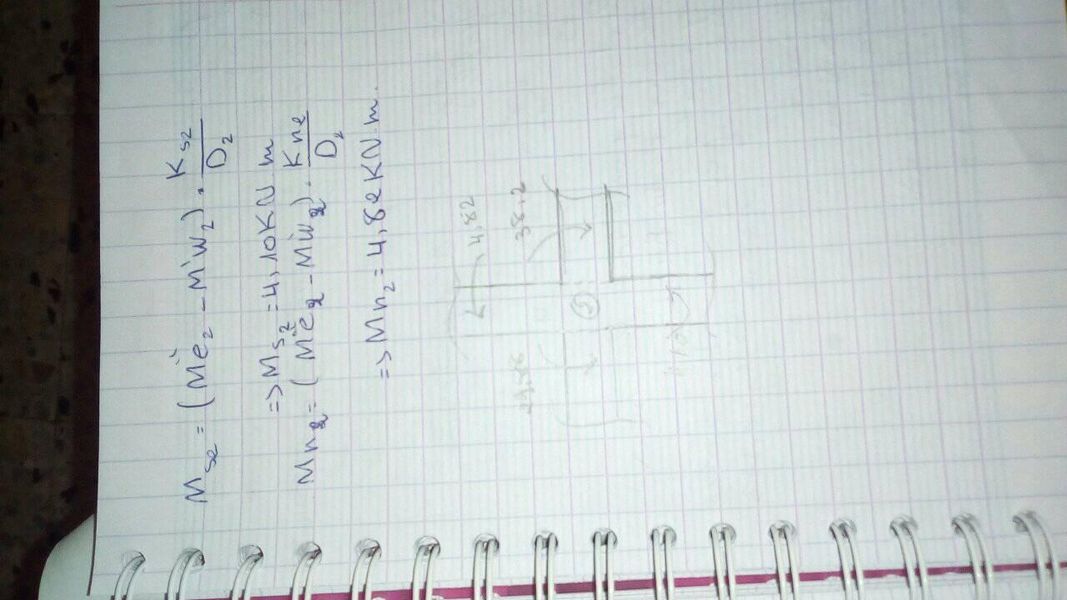 Ms2 = (M'e2 - M'w2) . Ks2/D2
=> Ms2 = 4,10KN m
Mn2 = (M'e2 - M'w2) . Kne/D2
=> Mn2 = 4,82KN m.
4,82
38.2
2